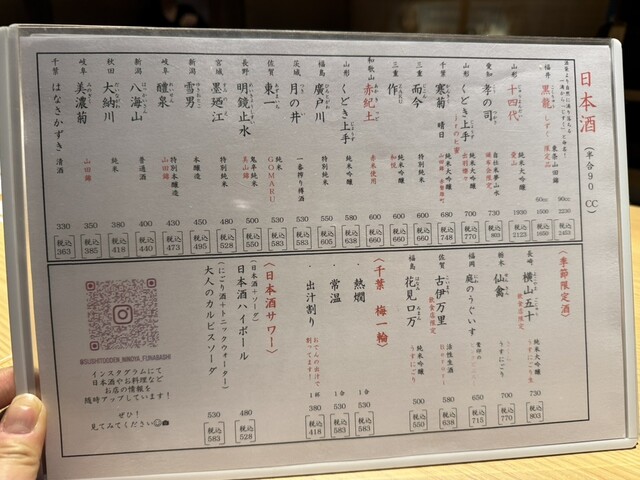 日本酒(半合90CC)
福井 黒龍 しずく 限定品 東条山田錦
60cc 1500 税込1650
90cc 2230 税込2453
山形 十四代 純米大吟醸 愛山 1930 税込2123
愛知 孝の司 自社米夢山水 蔵元会限定 809 税込
山形 くどき上手 Jrのヒ蜜 純米大吟醸 出羽燦々 700 税込770
千葉 寒菊 晴日 純米大吟醸 680 税込748
三重 而今 特別純米 600 税込660
三重 作 純米吟醸 600 税込660
和歌山 赤紀土 赤米使用 600 税込660
山形 くどき上手 純米吟醸 580 税込638
福島 廣戸川 特別純米 550 税込605
茨城 月の井 一番搾り樽酒 530 税込583
佐賀 東一 純米 GOMARU 530 税込583
長野 明鏡止水 純米 美山錦 500 税込550
宮城 墨廼江 特別純米 480 税込528
新潟 雪男 本醸造 450 税込495
岐阜 醴泉 特別本醸造 山田錦 430 税込473
新潟 八海山 普通酒 400 税込440
秋田 大納川 純米 380 税込418
岐阜 美濃菊 山田錦 350 税込385
千葉 はなさかずき 清酒 330 税込363
〈季節限定酒〉
長崎 横山五十 飲食店限定 純米大吟醸 うすにごり生 730 税込803
栃木 仙禽 うすにごり 700 税込770
福岡 庭のうぐいす 650 税込715
佐賀 古伊万里 飲食店限定 活性生酒 580 税込638
福島 花見ロ万 純米吟醸 うすにごり 500 税込550
〈千葉 梅一輪〉
・熱燗 1合 530 税込583
・常温 1合 530 税込583
・出汁割り おでんの出汁で割ってます! 1杯 380 税込418
〈日本酒サワー〉
(日本酒+ソーダ)
日本酒ハイボール 480 税込528
(にごり酒+トニックウォーター)
大人のカルピスソーダ 530 税込583
インスタグラムにて
日本酒やお料理など
お店の情報を
随時アップしています!
ぜひ!
見てみてください